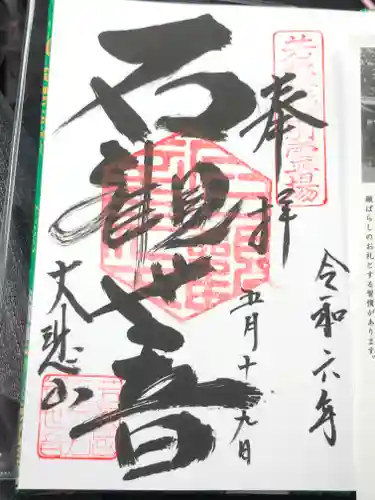 令和六年
奉拝
五月十九日
石観世音
大悲山
願ばらしのお礼とする習慣があります。